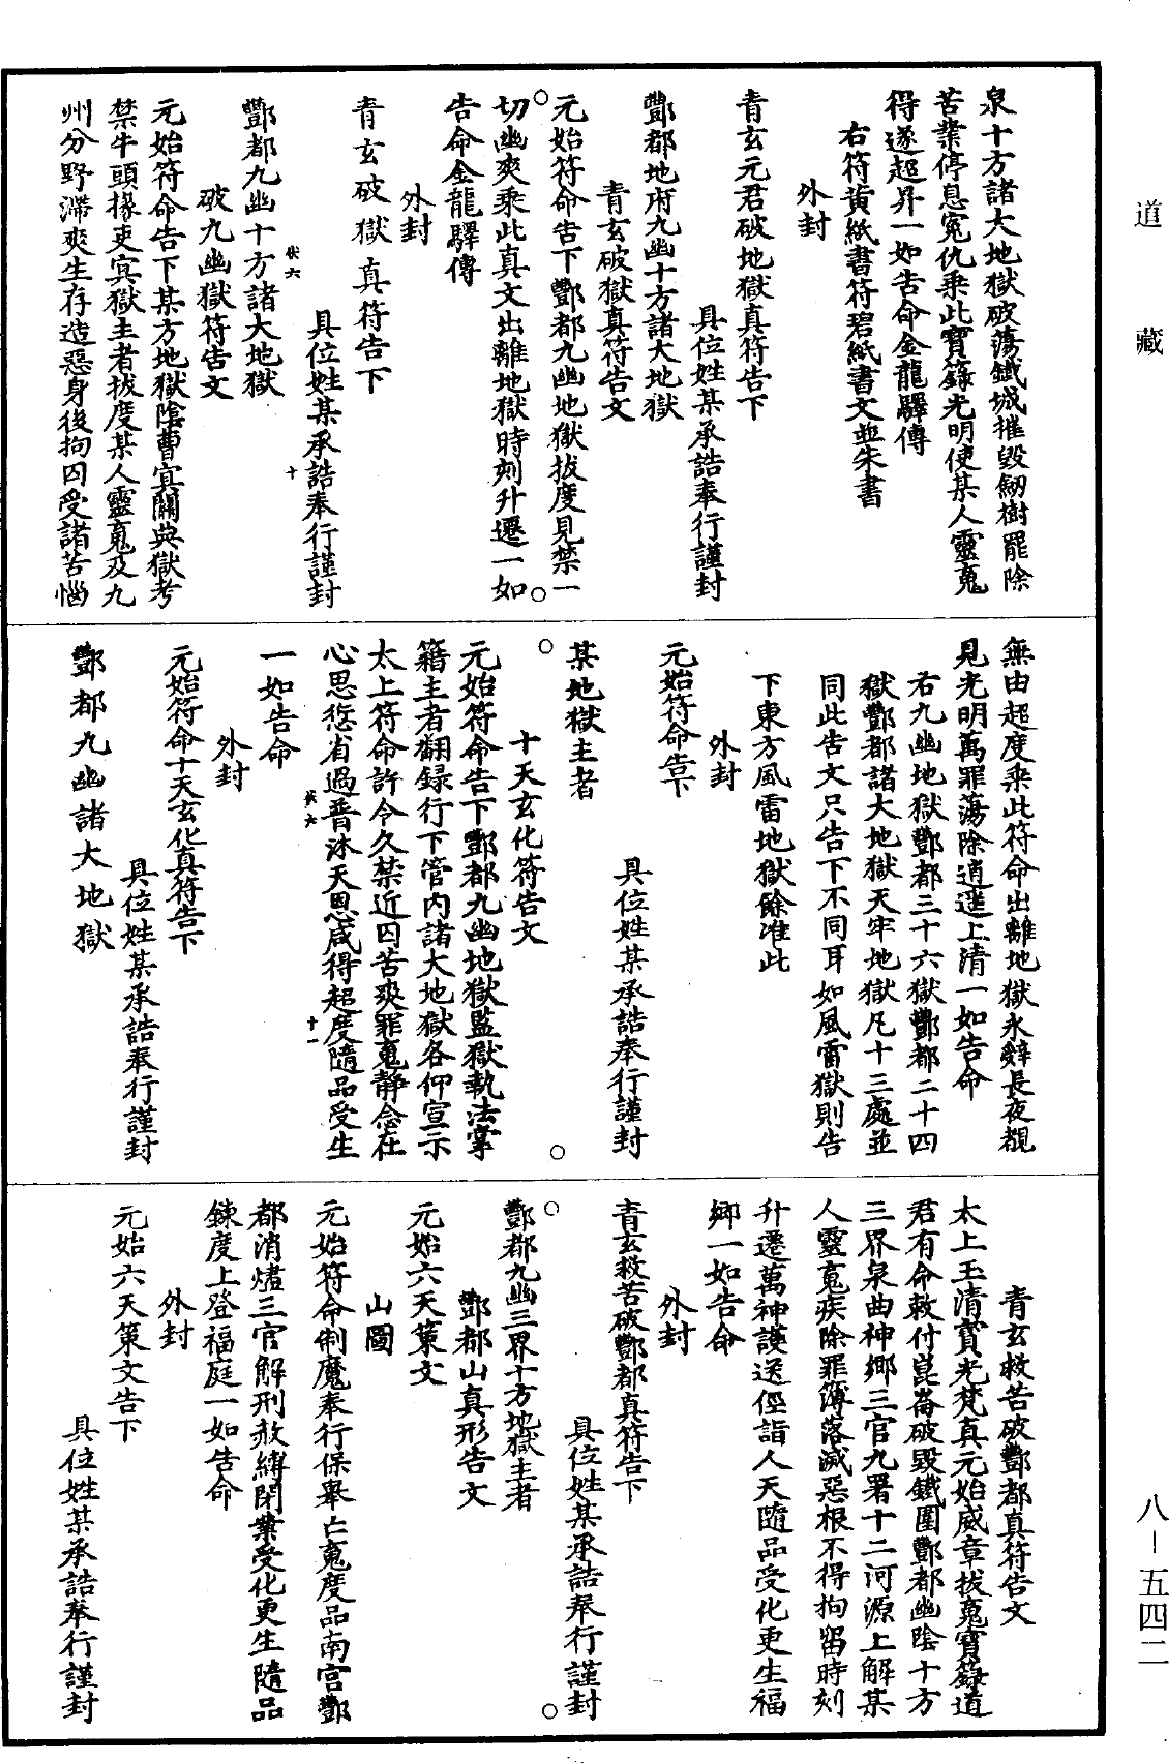 道藏
泉十方諸大地獄破蕩鐵城摧毀劒樹罷除
苦業停息寃仇乘此寶籙光明使某人靈䰟
得遂超昇一如告命金龍驛傳
右符黄紙書符碧紙書文並朱書
外封
青玄元君破地獄真符告下
具位姓某承誥奉行謹封
酆都地府九幽十方諸大地獄
青玄破獄真符告文
元始符命告下酆都九幽地獄拔度見禁一
切幽爽乘此真文出離地獄時刻升遷一如
告命金龍驛傳
外封
青玄破獄真符告下
具位姓某承誥奉行謹封
十
酆都九幽十方諸大地獄
破九幽獄符告文
元始符命告下某方地獄陰曹㝠關典獄考
禁牛頭掾吏㝠獄主者拔度某人靈䰟及九
州分野滯爽生存造惡身後拘囚受諸苦惱
無由超度乘此符命出離地獄永辭長夜覩
見光明萬罪蕩除逍遥上清一如告命
右九幽地獄酆都三十六獄酆都二十四
獄酆都諸大地獄天牢地獄凡十三處並
同此告文只告下不同耳如風雷獄則告
下東方風雷地獄餘准此
外封
元始符命告下
具位姓某承誥奉行謹封
某地獄主者
十天玄化符告文
元始符命告下酆都九幽地獄監獄執法掌
籍主者翻録行下管内諸大地獄各仰宣示
太上符命許令久禁近囚苦爽罪䰟静念在
心思愆省過普沐天恩咸得超度隨品受生
十一
一如告命
外封
元始符命十天玄化真符告下
具位姓某承誥奉行謹封
酆都九幽諸大地獄
青玄救苦破酆都真符告文
太上玉清寶光梵真元始威章拔䰟寶籙道
君有命敕付崑崙破毀鐵圍酆都幽陰十方
三界泉曲神鄉三官九署十二河源上解某
人靈䰟疾除罪簿落滅惡根不得拘留時刻
升遷萬神護送徑詣人天隨品受化更生福
鄉一如告命
外封
青玄救苦破酆都真符告下
具位姓某承誥奉行謹封
酆都九幽三界十方地獄主者
酆都山真形告文
元始六天策文
山圖
元始符命制魔奉行保舉亡䰟度品南宫酆
都消燼三官解刑赦縛閉業受化更生隨品
鍊度上登福庭一如告命
外封
元始六天策文告下
具位姓某承誥奉行謹封
八-五四二